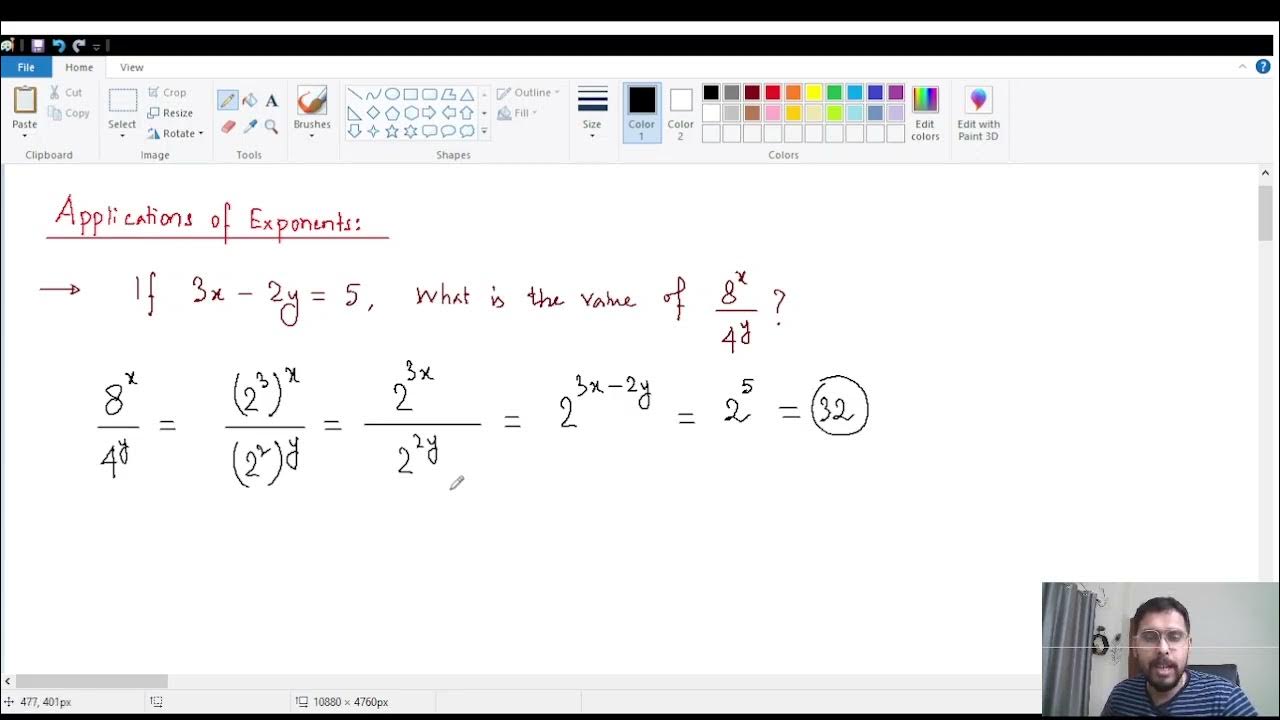 File Home View
Cut
Copy
Paste
Clipboard
Select
Crop
Resize
Rotate
Image
Tools
Brushes
Outline
Fill
Shapes
Size
Color 1
Color 2
Edit colors
Colors
Edit with Paint 3D
Applications of Exponents:
→ If 3x – 2y = 5, What is the value of 8^x / 4^y ?
8^x / 4^y = (2^3)^x / (2^2)^y = 2^3x / 2^2y = 2^3x–2y = 2^5 = 32
477, 401px
10880 × 4760px